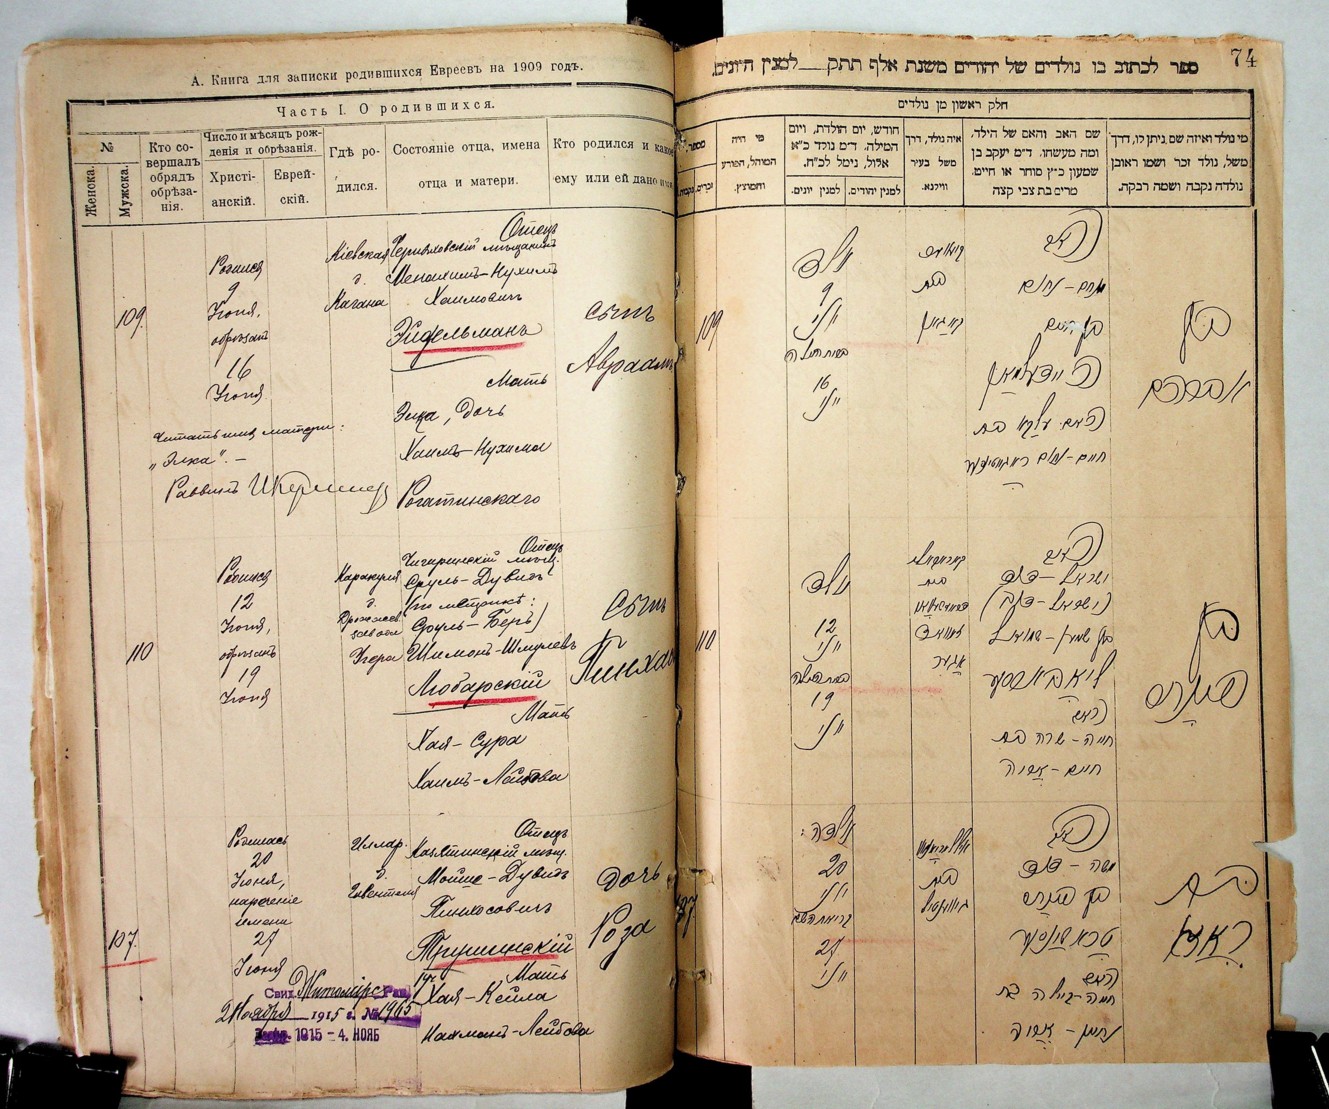 А. Книга для записки родившихся Евреевъ на 1909 годъ.
Часть I. О родившихся.
№
Женска.
Мужска.
Кто совершалъ обрядъ обрѣзанія.
Число и мѣсяцъ рожденія и обрѣзанія.
Христіанскій.
Еврейскій.
Гдѣ родился.
Состояніе отца, имена отца и матери.
Кто родился и какое
ему или ей дано имя
109.
Родился
9
Іюня,
обрѣзанъ
16
Іюня
Кіевская
д.
Кагана
Отецъ
Черняховскій мѣщанинъ
Менахимъ-Нухимъ
Хаимовичъ
Эйдельманъ
Мать
Элка, дочь
Хаимъ-Нухима
Рогатинскаго
Сынъ
Авраамъ
Читать имя матери:
„Элка". –
Раввинъ
110
Родился
12
Іюня,
обрѣзанъ
19
Іюня
д.
Отецъ
Чигиринскій мѣщ.
Сруль-Дувидъ
Сруль-Беръ)
Шимонъ-Шмулевъ
Любарскій
Мать
Хая-Сура
Хаимъ-Лейбова
Сынъ
Пинхасъ
107.
Родилась
20
Іюня,
нареченіе
имени
27
Іюня
Иллар.
д.
Отецъ
мѣщ.
Мойше-Дувидъ
Пинхосовичъ
Трушинскій
Мать
Хая-Кейла
Нахманъ-Лейбова
дочь
Роза
Свид. Житомірск. Рав.
2 Ноября 1915 г. № 1965
1915 - 4. НОЯБ
74
ספר לכתוב בו נולדים של יהודים משנת אלף תתק__למנין היונים.
חלק ראשון מן נולדים
מספר.
זכרים.
נקבות.
מי היה המוהל, הפורע והמוצץ.
חודש, יום הולדת, ויום המילה. ד"מ נולד כ"א אלול, נימל לכ"ח.
למנין יונים.
למנין יהודים.
איה נולד, דרך משל בעיר ווילנא.
שם האב והאם של הילד. ומה מעשהו. ד"מ יעקב בן שמעון כ"ץ סוחר או חיים. מרים בת צבי קצה
מי נולד ואיזה שם ניתן לו, דרך משל, נולד זכר ושמו ראובן נולדה נקבה ושמה רבקה.
109
נולד
9
יוני
16
יוני
האב
מנחם-נחום
בן חיים
האם עלקא בת
בן
אברהם
110
נולד
12
יוני
19
יוני
האב
ישראל-דוד
האם
חיה-שרה בת
חיים-ליב
בן
פנחס
107
נולדה:
20
יוני
27
יוני
האב
משה-דוד
בן פנחס
האם
חיה-קיילה בת
בת
ראזא